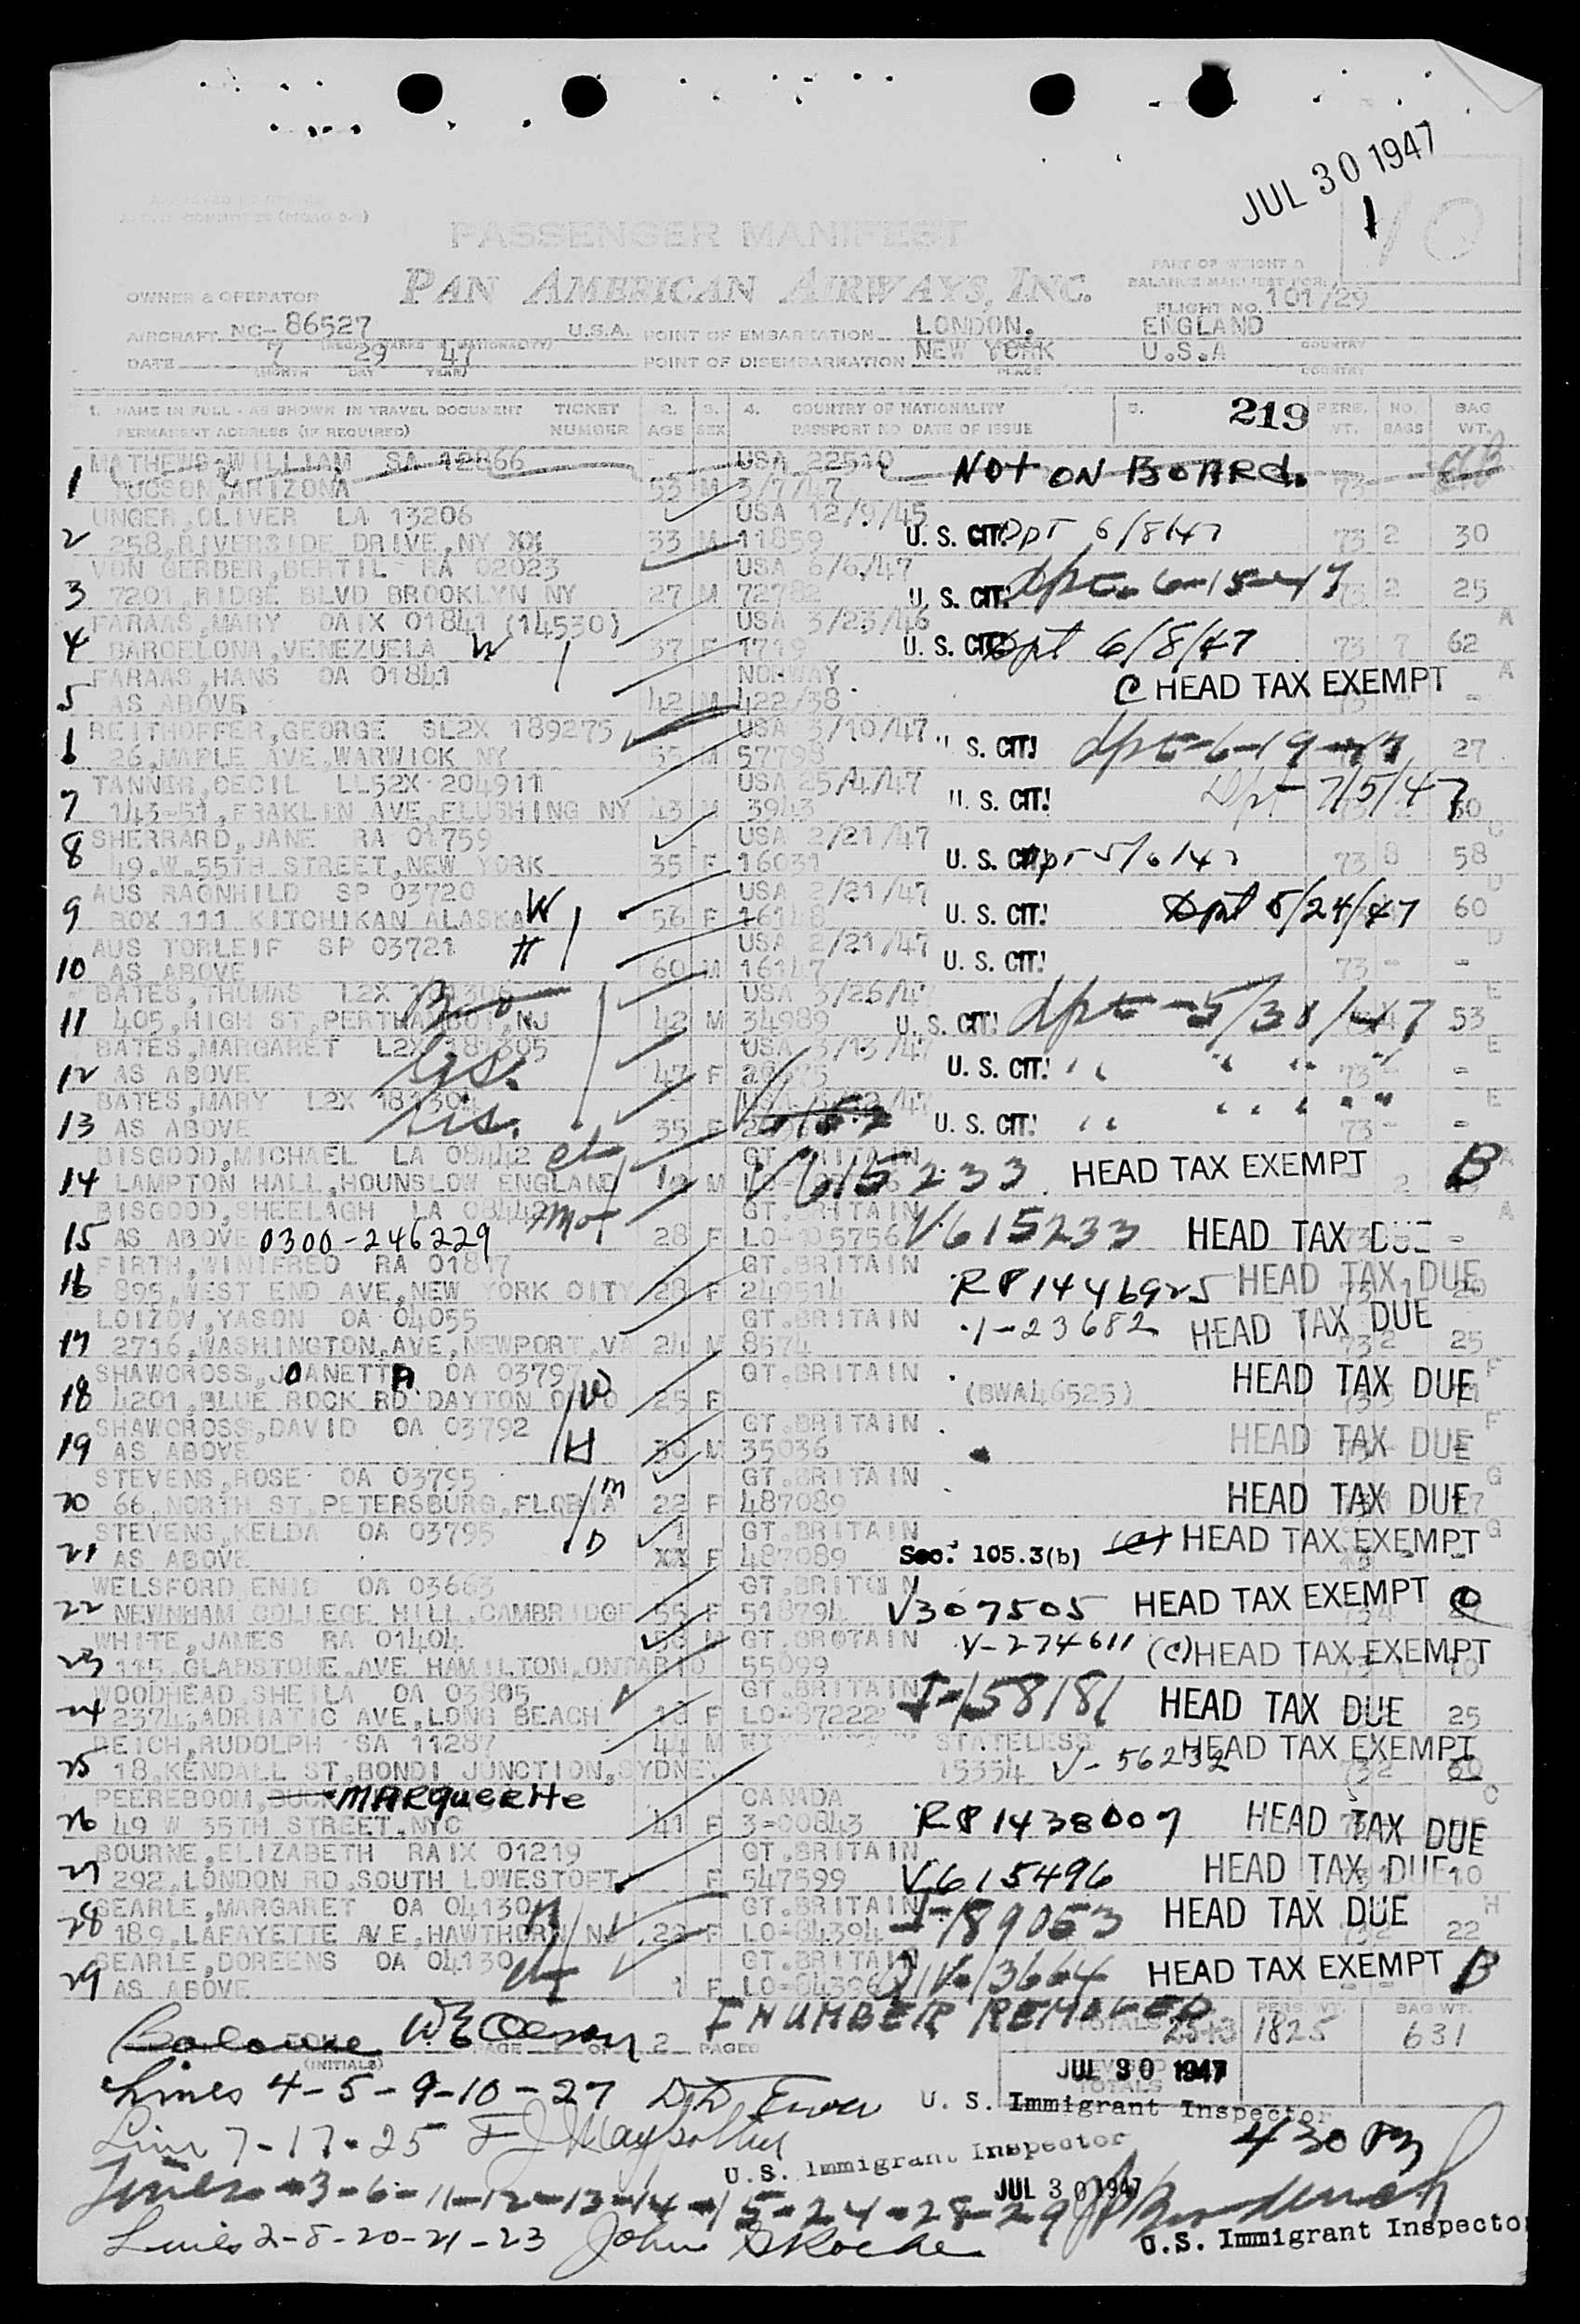 JUL 30 1947
1
10
PASSENGER MANIFEST
PAN AMERICAN AIRWAYS, INC.
PART OF WEIGHT &
BALANCE MANIFEST FOR
OWNER & OPERATOR
FLIGHT NO. 101/29
AIRCRAFT NC- 86527 U.S.A. POINT OF EMBARKATION LONDON, ENGLAND
DATE 7 29 47 POINT OF DISEMBARKATION NEW YORK U.S.A
MONTH DAY YEAR PLACE COUNTRY
1. NAME IN FULL - AS SHOWN IN TRAVEL DOCUMENT TICKET 2. 3. 4. COUNTRY OF NATIONALITY 5. 219 PERS. NO. BAG
PERMANENT ADDRESS (IF REQUIRED) NUMBER AGE SEX PASSPORT NO DATE OF ISSUE WT. BAGS WT.
MATHEWS, WILLIAM SA 12866 USA 22510
1 TUCSON, ARIZONA 53 M 3/7/47 NOT ON BOARD. 73
UNGER, OLIVER LA 13206 USA 12/9/45
2 258, RIVERSIDE DRIVE, NY XX 33 M 11859 U. S. CIT. Dpt 6/8/47 73 2 30
VON GERBER, BERTIL RA 02023 USA 6/6/47
3 7201, RIDGE BLVD BROOKLYN NY 27 M 72782 U. S. CIT. dpt. 6-15-47 73 2 25
FARAAS, MARY OAIX 01841 (14530) USA 3/23/46 A
4 BARCELONA, VENEZUELA W 37 F 1719 U. S. CIT. Dpt 6/8/47 73 7 62
FARAAS, HANS OA 01841 NORWAY A
5 AS ABOVE 42 M 422/38 C HEAD TAX EXEMPT 73 - -
REITHOFFER, GEORGE SL2X 189275 USA 3/10/47
6 26, MAPLE AVE, WARWICK NY 55 M 57798 U. S. CIT. dpt-6-19-47 27
TANNER, CECIL LL52X 204911 USA 25/4/47
7 143-51, FRAKLIN AVE, FLUSHING NY 43 M 3943 U. S. CIT. Dpt 7/5/47 30
SHERRARD, JANE RA 01759 USA 2/21/47 C
8 49.W.55TH STREET, NEW YORK 35 F 16031 U. S. CIT. dpt 5/6/47 73 8 58
AUS RAGNHILD SP 03720 USA 2/21/47 D
9 BOX 111 KITCHIKAN ALASKA W 56 F 16148 U. S. CIT. Dpt 5/24/47 60
AUS TORLEIF SP 03721 H USA 2/21/47 D
10 AS ABOVE 60 M 16147 U. S. CIT. 73 - -
BATES, THOMAS L2X 181306 Bro USA 3/26/47 E
11 405, HIGH ST, PERTHAMBOY, NJ 42 M 34989 U. S. CIT. dpt - 5/30/47 53
BATES, MARGARET L2X 181305 Sis. USA 3/13/47 E
12 AS ABOVE 47 F U. S. CIT. " " " " 73 - -
BATES, MARY L2X 181304 Sis. E
13 AS ABOVE 35 F U. S. CIT. " " " " " 73 - -
BISGOOD, MICHAEL LA 08442 ch GT.BRITAIN A
14 LAMPTON HALL, HOUNSLOW ENGLAND M V615233 HEAD TAX EXEMPT B
BISGOOD, SHEELAGH LA 08442 Mot GT.BRITAIN A
15 AS ABOVE 0300-246229 28 F V615233 HEAD TAX DUE -
FIRTH, WINIFRED RA 01817 GT.BRITAIN
16 895, WEST END AVE, NEW YORK CITY 28 F 249514 RP1446925 HEAD TAX DUE
LOIZOV, YASON OA 04055 GT.BRITAIN
17 2716, WASHINGTON, AVE, NEWPORT, VA 24 M 8574 1-23682 HEAD TAX DUE 73 2 25
SHAWCROSS, JOANETTA OA 03797 GT.BRITAIN F
18 4201, BLUE ROCK RD DAYTON OHIO W 25 F (BWA46525) HEAD TAX DUE
SHAWCROSS, DAVID OA 03792 GT.BRITAIN F
19 AS ABOVE H 30 M 35036 HEAD TAX DUE
STEVENS, ROSE OA 03795 GT.BRITAIN G
20 66, NORTH ST, PETERSBURG, FLORIA m 22 F 487089 HEAD TAX DUE
STEVENS, KELDA OA 03795 1 GT.BRITAIN G
21 AS ABOVE D XX F 487089 Sec. 105.3(b) (C) HEAD TAX EXEMPT
WELSFORD ENID OA 03663 GT.BRITAIN
22 NEWNHAM COLLEGE HILL, CAMBRIDGE 55 F 518794 V307505 HEAD TAX EXEMPT C
WHITE, JAMES RA 01404 M GT.BROTAIN
23 115, GLADSTONE, AVE HAMILTON, ONTARIO 55099 V-274611 (C) HEAD TAX EXEMPT
WOODHEAD SHEILA OA 03805 GT.BRITAIN
24 2374, ADRIATIC AVE, LONG BEACH F LO-87222 I-158181 HEAD TAX DUE 25
REICH, RUDOLPH SA 11287 44 M STATELESS
25 18, KENDALL ST, BONDI JUNCTION, SYDNEY 15354 V-56232 HEAD TAX EXEMPT 73 2 30
PEEREBOOM, MARQUERITE CANADA C
26 49 W 55TH STREET, NYC 41 F 3-00843 RP1438009 HEAD TAX DUE
BOURNE, ELIZABETH RAIX 01219 GT.BRITAIN
27 292, LONDON RD, SOUTH LOWESTOFT F 547599 V615496 HEAD TAX DUE 10
SEARLE, MARGARET OA 04130 M GT.BRITAIN H
28 189, LAFAYETTE AVE, HAWTHORN NJ 22 F LO-84394 I-189053 HEAD TAX DUE 22
SEARLE, DOREENS OA 04130 ch GT.BRITAIN
29 AS ABOVE 1 F LO-84396 QIV-13664 HEAD TAX EXEMPT B
I NUMBER REMOVED
PERS. WT. BAG WT.
TOTALS 1825 631
(INITIALS) PAGE OF 2 PAGES
JUL 30 1947
TOTALS
Lines 4-5-9-10-27
U. S. Immigrant Inspector
Line 7-17-25
430 PM
U.S. Immigrant Inspector
JUL 30 1947
Lines-3-6-11-12-13-14-15-24-28-29
Lines 2-8-20-21-23 John Roche
U.S. Immigrant Inspector